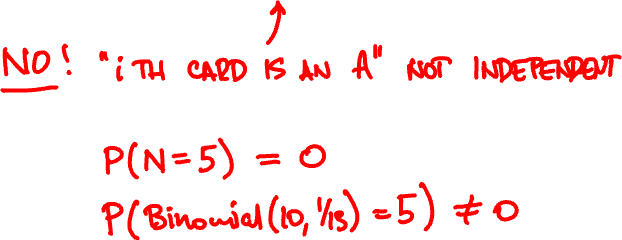 NO! "i TH CARD IS AN A" NOT INDEPENDENT
P(N=5) = 0
P(Binomial(10, 1/13) = 5) ≠ 0